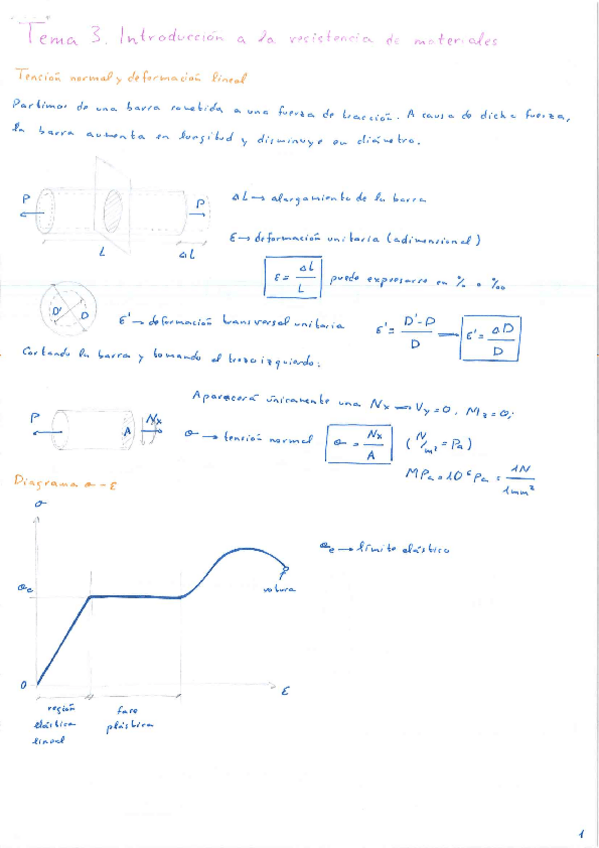 Tema 3. Introducción a la resistencia de materiales
Tensión normal y deformación lineal
Partimos de una barra sometida a una fuerza de tracción. A causa de dicha fuerza,
la barra aumenta en longitud y disminuye en diámetro.
P
P
L
ΔL
ΔL → alargamiento de la barra
ε → deformación unitaria (adimensional)
ε = ΔL/L puede expresarse en % o ‰
D' D
ε' → deformación transversal unitaria ε' = D'-D/D → ε' = ΔD/D
Cortando la barra y tomando el trozo izquierdo:
P
A
Nx
Aparecerá únicamente una Nx → Vy = 0, Mz = 0;
σ → tensión normal σ = Nx/A (N/m² = Pa)
MPa = 10⁶ Pa = 1N/1mm²
Diagrama σ - ε
σ
σe
0
ε
rotura
σe → límite elástico
región
elástica
lineal
fase
plástica
1